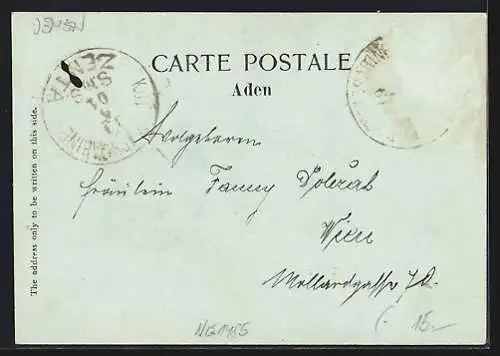 JEMEN
CARTE POSTALE
Aden
K.u.K.
S.M.S.
ZENTA
Wolgeboren
Fräulein Fanny Dolezal
Wien
Mollardgasse 70.
The address only to be written on this side.
15.-